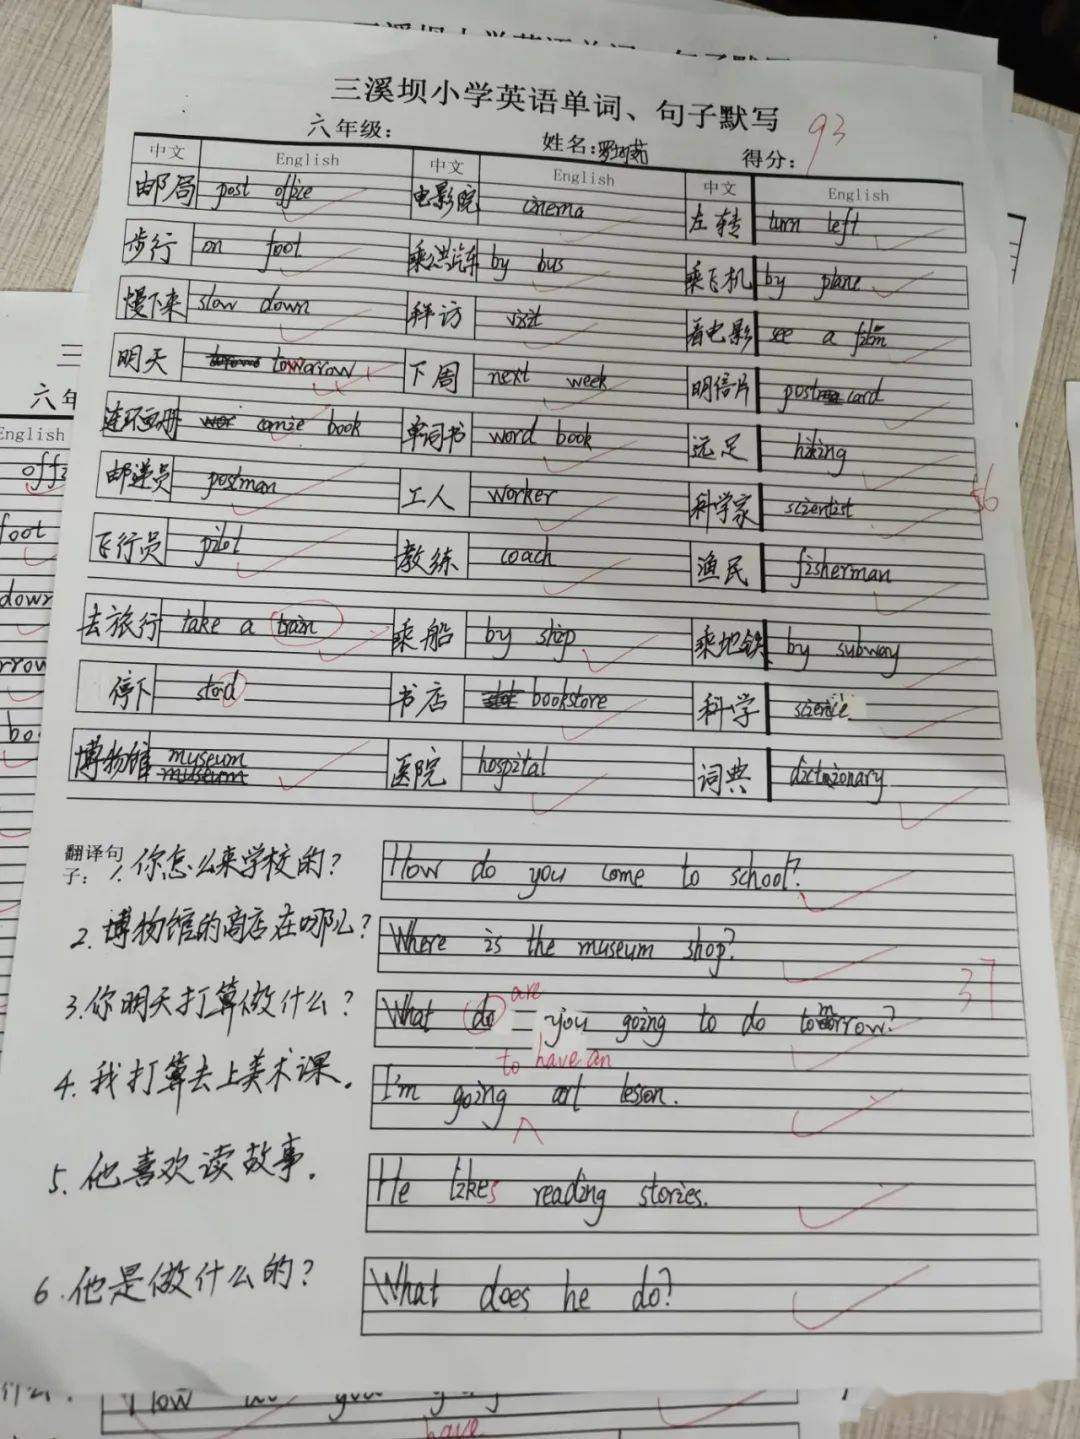 三溪坝小学英语单词、句子默写
六年级： 姓名： 得分： 93
中文 English 中文 English 中文 English
邮局 post office 电影院 cinema 左转 turn left
步行 on foot 乘公共汽车 by bus 乘飞机 by plane
慢下来 slow down 拜访 visit 看电影 see a film
明天 towarrow 下周 next week 明信片 postcard
连环画册 comic book 单词书 word book 远足 hiking
邮递员 postman 工人 worker 科学家 scientist
56
飞行员 pilot 教练 coach 渔民 fisherman
去旅行 take a train 乘船 by ship 乘地铁 by subway
停下 stod 书店 bookstore 科学 science
博物馆 museum 医院 hospital 词典 dictionary
museum
翻译句子： 1. 你怎么来学校的? How do you come to school?
2. 博物馆的商店在哪儿? Where is the museum shop?
37
are
3. 你明天打算做什么? What do you going to do tomorrow?
to have an
4. 我打算去上美术课。 I'm going art lesson.
5. 他喜欢读故事。 He likes reading stories.
6. 他是做什么的? What does he do?
English
foot
down
have